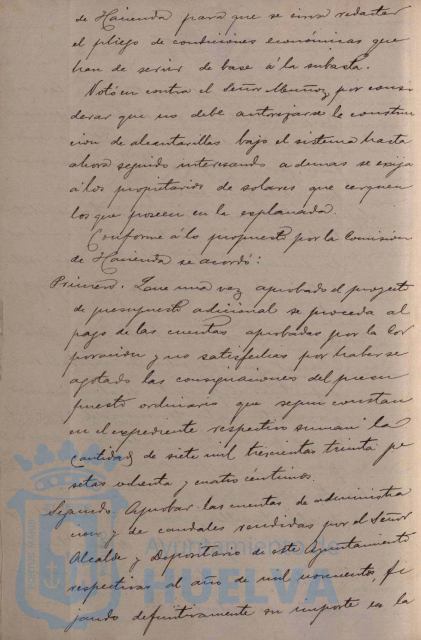 de Hacienda para que se sirva redactar
el pliego de condiciones económicas que
han de servir de base á la subasta.
Votó en contra el Señor Muñoz por consi
derar que no debe autorizarse la construc
cion de alcantarillas bajo el sistema hasta
ahora seguido interesando ademas se exija
á los propietarios de solares que cerquen
los que poseen en la esplanada.
Conforme á lo propuesto por la Comisión
de Hacienda se acordó:
Primero. Que una vez aprobado el proyecto
de presupuesto adicional se proceda al
pago de las cuentas aprobadas por la Cor
poración y no satisfechas por haberse
agotado las consignaciones del presu
puesto ordinario que segun constan
en el expediente respectivo suman la
cantidad de siete mil trescientas treinta pe
setas ochenta y cuatro céntimos.
Segundo. Aprobar las cuentas de administra
cion y de caudales rendidas por el Señor
Alcalde y Depositario de este Ayuntamiento
respectivas al año de mil novecientos, fi
jando definitivamente su importe en la
Ayuntamiento de
HUELVA